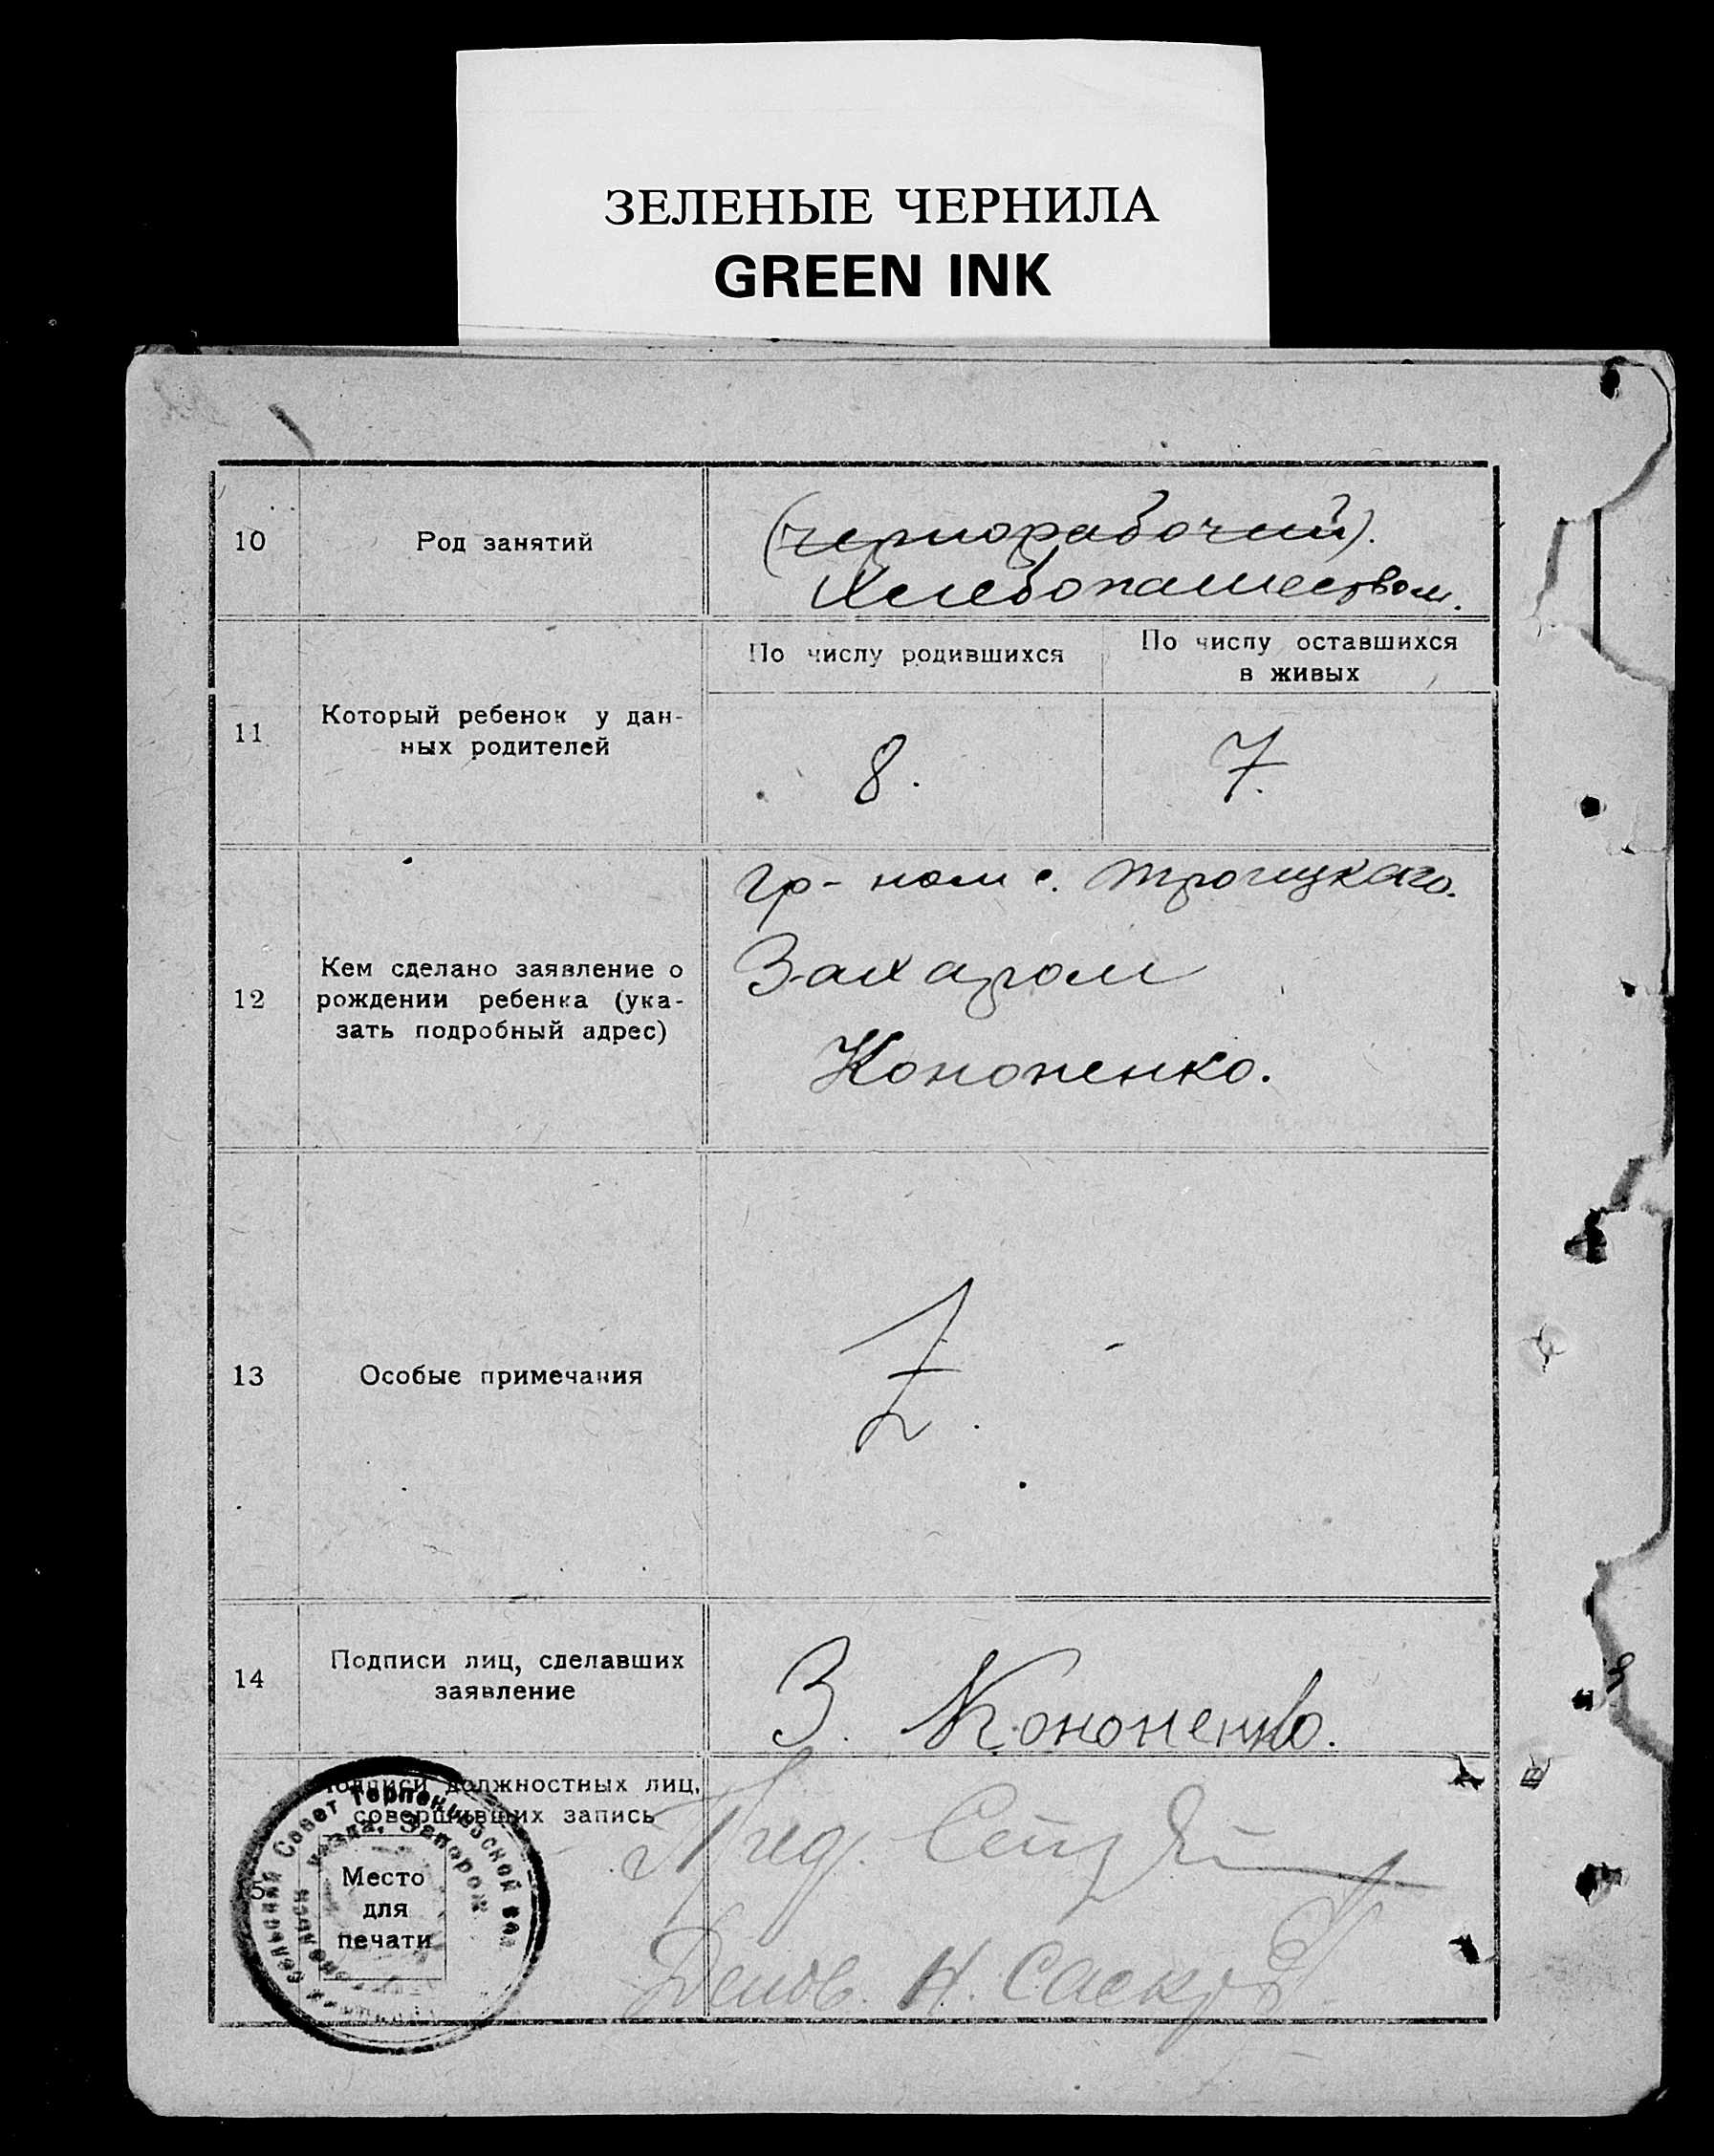 ЗЕЛЕНЫЕ ЧЕРНИЛА
GREEN INK
10
Род занятий
(чернорабочий).
Хлебопашеством.
11
Который ребенок у дан-
ных родителей
По числу родившихся
По числу оставшихся
в живых
8.
7.
12
Кем сделано заявление о
рождении ребенка (ука-
зать подробный адрес)
гр-ном с. Троицкаго.
Захаром
Кононенко.
13
Особые примечания
14
Подписи лиц, сделавших
заявление
З. Кононенко.
Подписи должностных лиц,
совершивших запись
Место
для
печати
Сельский Совет Терпеньевской вол
уезда, Запорож
Пред.
Делов. Н.